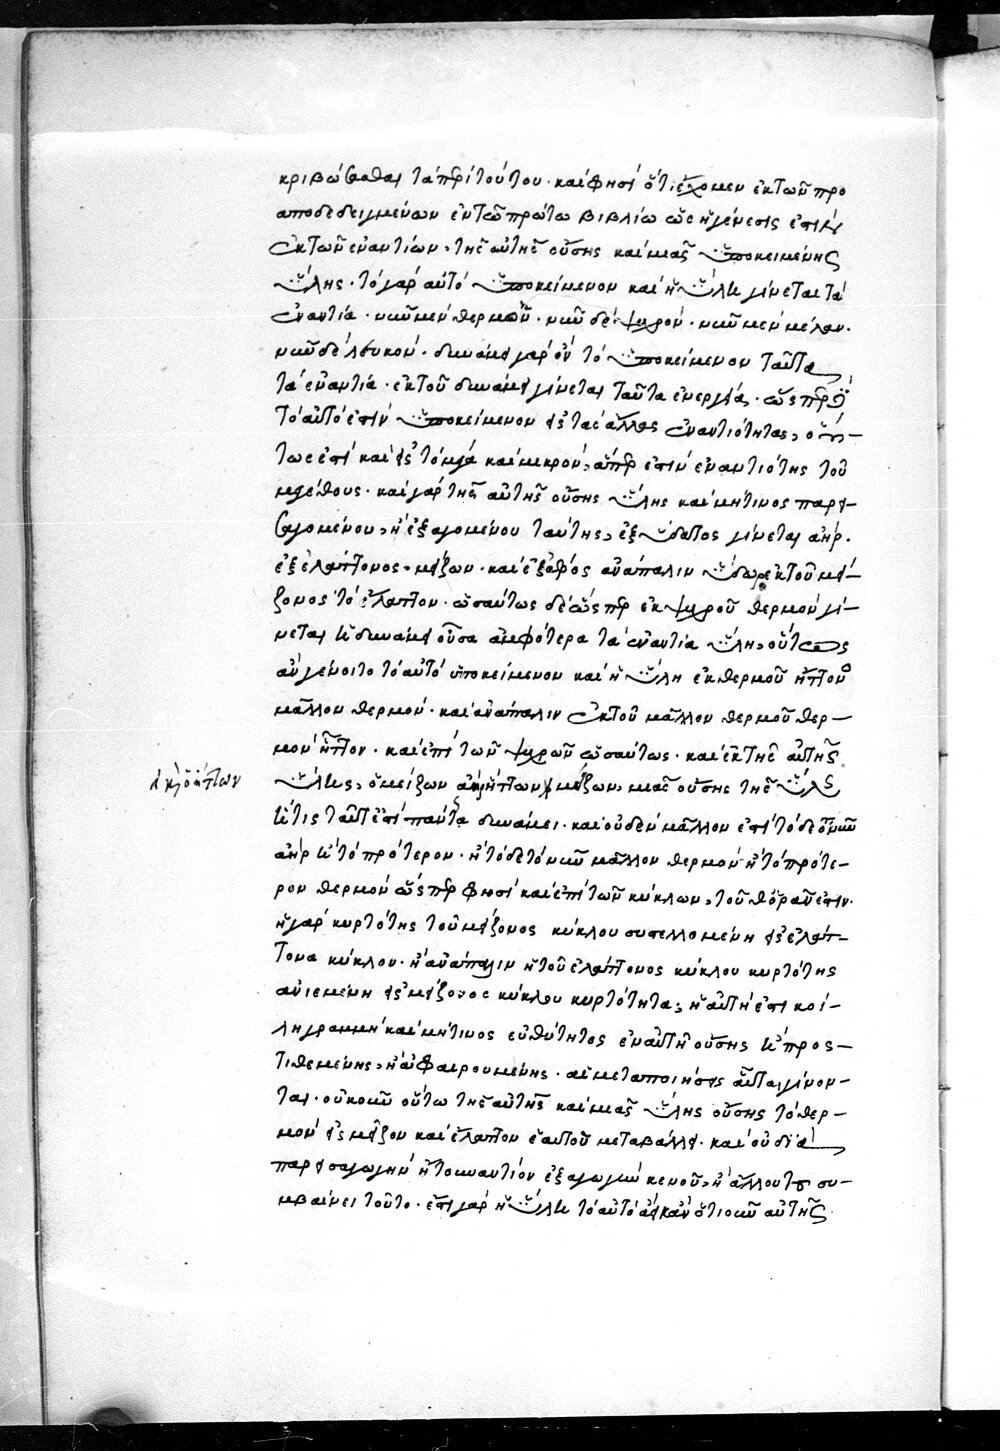 κριβώσασθαι τὰ περὶ τούτου· καὶ φησὶ ὅτι ἔχομεν ἐκ τῶν προ
αποδεδειγμένων ἐν τῶ πρώτω βιβλίω ὡς ἡ γένεσις ἐστὶν
ἐκ τῶν ἐναντίων, τῆς αὐτῆς οὔσης καὶ μιᾶς ὑποκειμένης
ὕλης· τὸ γὰρ αὐτὸ ὑποκείμενον καὶ ἡ ὕλη γίνεται τὰ
ἐναντία· νῦν μὲν θερμὸν· νῦν δὲ ψυχρόν· νῦν μὲν μέλαν·
νῦν δὲ λευκόν· δυνάμει γὰρ ὂν τὸ ὑποκείμενον ταῦτα
τὰ ἐναντία· ἐκ τοῦ δυνάμει γίνεται ταῦτα ἐνεργεία· ὥσπερ
τὸ αὐτό ἐστιν ὑποκείμενον εἰς τὰς ἄλλας ἐναντιότητας, οὕ-
τως ἐστὶ καὶ εἰς τὸ μέγα καὶ μικρόν, ἅπερ ἐστὶν ἐναντιότης τοῦ
μεγέθους· καὶ γὰρ τῆς αὐτῆς οὔσης ὕλης καὶ μήτινος παρει-
σαγομένου, ἢ ἐξαγομένου ταύτης, ἐξ ὕδατος γίνεται ἀήρ·
ἐξ ἐλάττονος, μείζων· καὶ ἐξ ἀέρος ἀνάπαλιν ὕδωρ ἐκ τοῦ μεί-
ζονος τὸ ἔλαττον· ὡσαύτως δὲ ὥσπερ ἐκ ψυχροῦ θερμὸν γί-
νεται ἡ δυνάμει οὖσα ἀμφότερα τὰ ἐναντία ὕλη, οὕτως
ἂν γένοιτο τὸ αὐτὸ ὑποκείμενον καὶ ἡ ὕλη ἐκ θερμοῦ ἧττον
μᾶλλον θερμόν· καὶ ἀνάπαλιν ἐκ τοῦ μᾶλλον θερμοῦ θερ-
μὸν ἧττον· καὶ ἐπὶ τῶν ψυχρῶν ὡσαύτως· καὶ ἐκ τῆς αὐτῆς
ὕλης, ὁ μείζων ἀὴρ ἥττων μείζων, μιᾶς οὔσης τῆς ὕλης
ἥτις ταῦτ' ἐστὶ πάντα δυνάμει· καὶ οὐδὲν μᾶλλον ἐστὶ τόδε τὸ νῦν
ἀὴρ ἢ τὸ πρότερον· ἢ τόδε τὸ νῦν μᾶλλον θερμὸν ἢ τὸ πρότε-
ρον θερμόν ὥσπερ φησὶ καὶ ἐπὶ τῶν κύκλων, τοῦθ' ὁρᾶν ἐστιν·
ἡ γὰρ κυρτότης τοῦ μείζονος κύκλου συστελλομένη εἰς ἐλάτ-
τονα κύκλον· ἢ ἀνάπαλιν ἡ τοῦ ἐλάττονος κύκλου κυρτότης
ἀνιεμένη εἰς μείζονος κύκλου κυρτότητα, ἡ αὐτή ἐστι κοί-
λη γραμμὴ καὶ μήτινος εὐθύτητος ἐν αὐτῆ οὔσης ἢ προσ-
τιθεμένης, ἢ ἀφαιρουμένης· αἱ μεταποιήσεις αὗται γίνον-
ται· οὐκοῦν οὕτω τῆς αὐτῆς καὶ μιᾶς ὕλης οὔσης τὸ θερ-
μὸν εἰς μεῖζον καὶ ἔλαττον ἑαυτοῦ μεταβάλλει· καὶ οὐ διὰ
παρεισαγωγὴν ἢ τοὐναντίον ἐξαγωγὴν κενοῦ, ἢ ἄλλου του συ-
μβαίνει τοῦτο· ἔστι γὰρ ἡ ὕλη τὸ αὐτὸ ἀεὶ κἂν ὁτιοῦν αὐτῆς